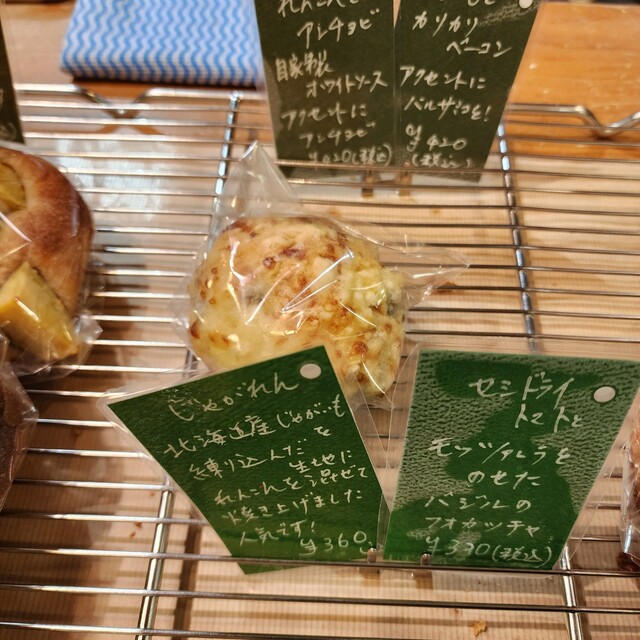 れんこんと
アンチョビ
自家製
ホワイトソース
アクセントに
アンチョビ
カリカリ
ベーコン
アクセントに
バルサミコを!
¥420
じゃがれん
北海道産じゃがいもを
練り込んだ生地に
れんこんを混ぜて
焼き上げました
人気です!
¥360
セミドライ
トマトと
モッツァレラを
のせた
バジルの
フォカッチャ
¥330(税込)